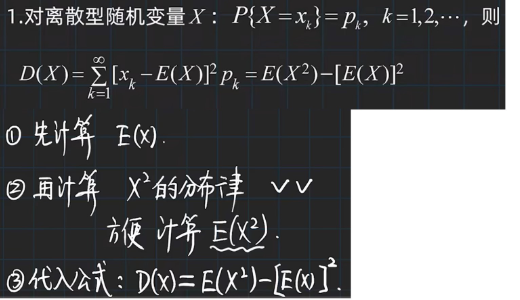 1.对离散型随机变量X：P{X=x_k}=p_k, k=1,2,⋯, 则
D(X)=∑_{k=1}^{∞}[x_k−E(X)]²p_k=E(X²)−[E(X)]²
① 先计算 E(X).
② 再计算 X²的分布律 ✓✓
方便 计算 E(X²).
③代入公式：D(X)=E(X²)−[E(X)]².